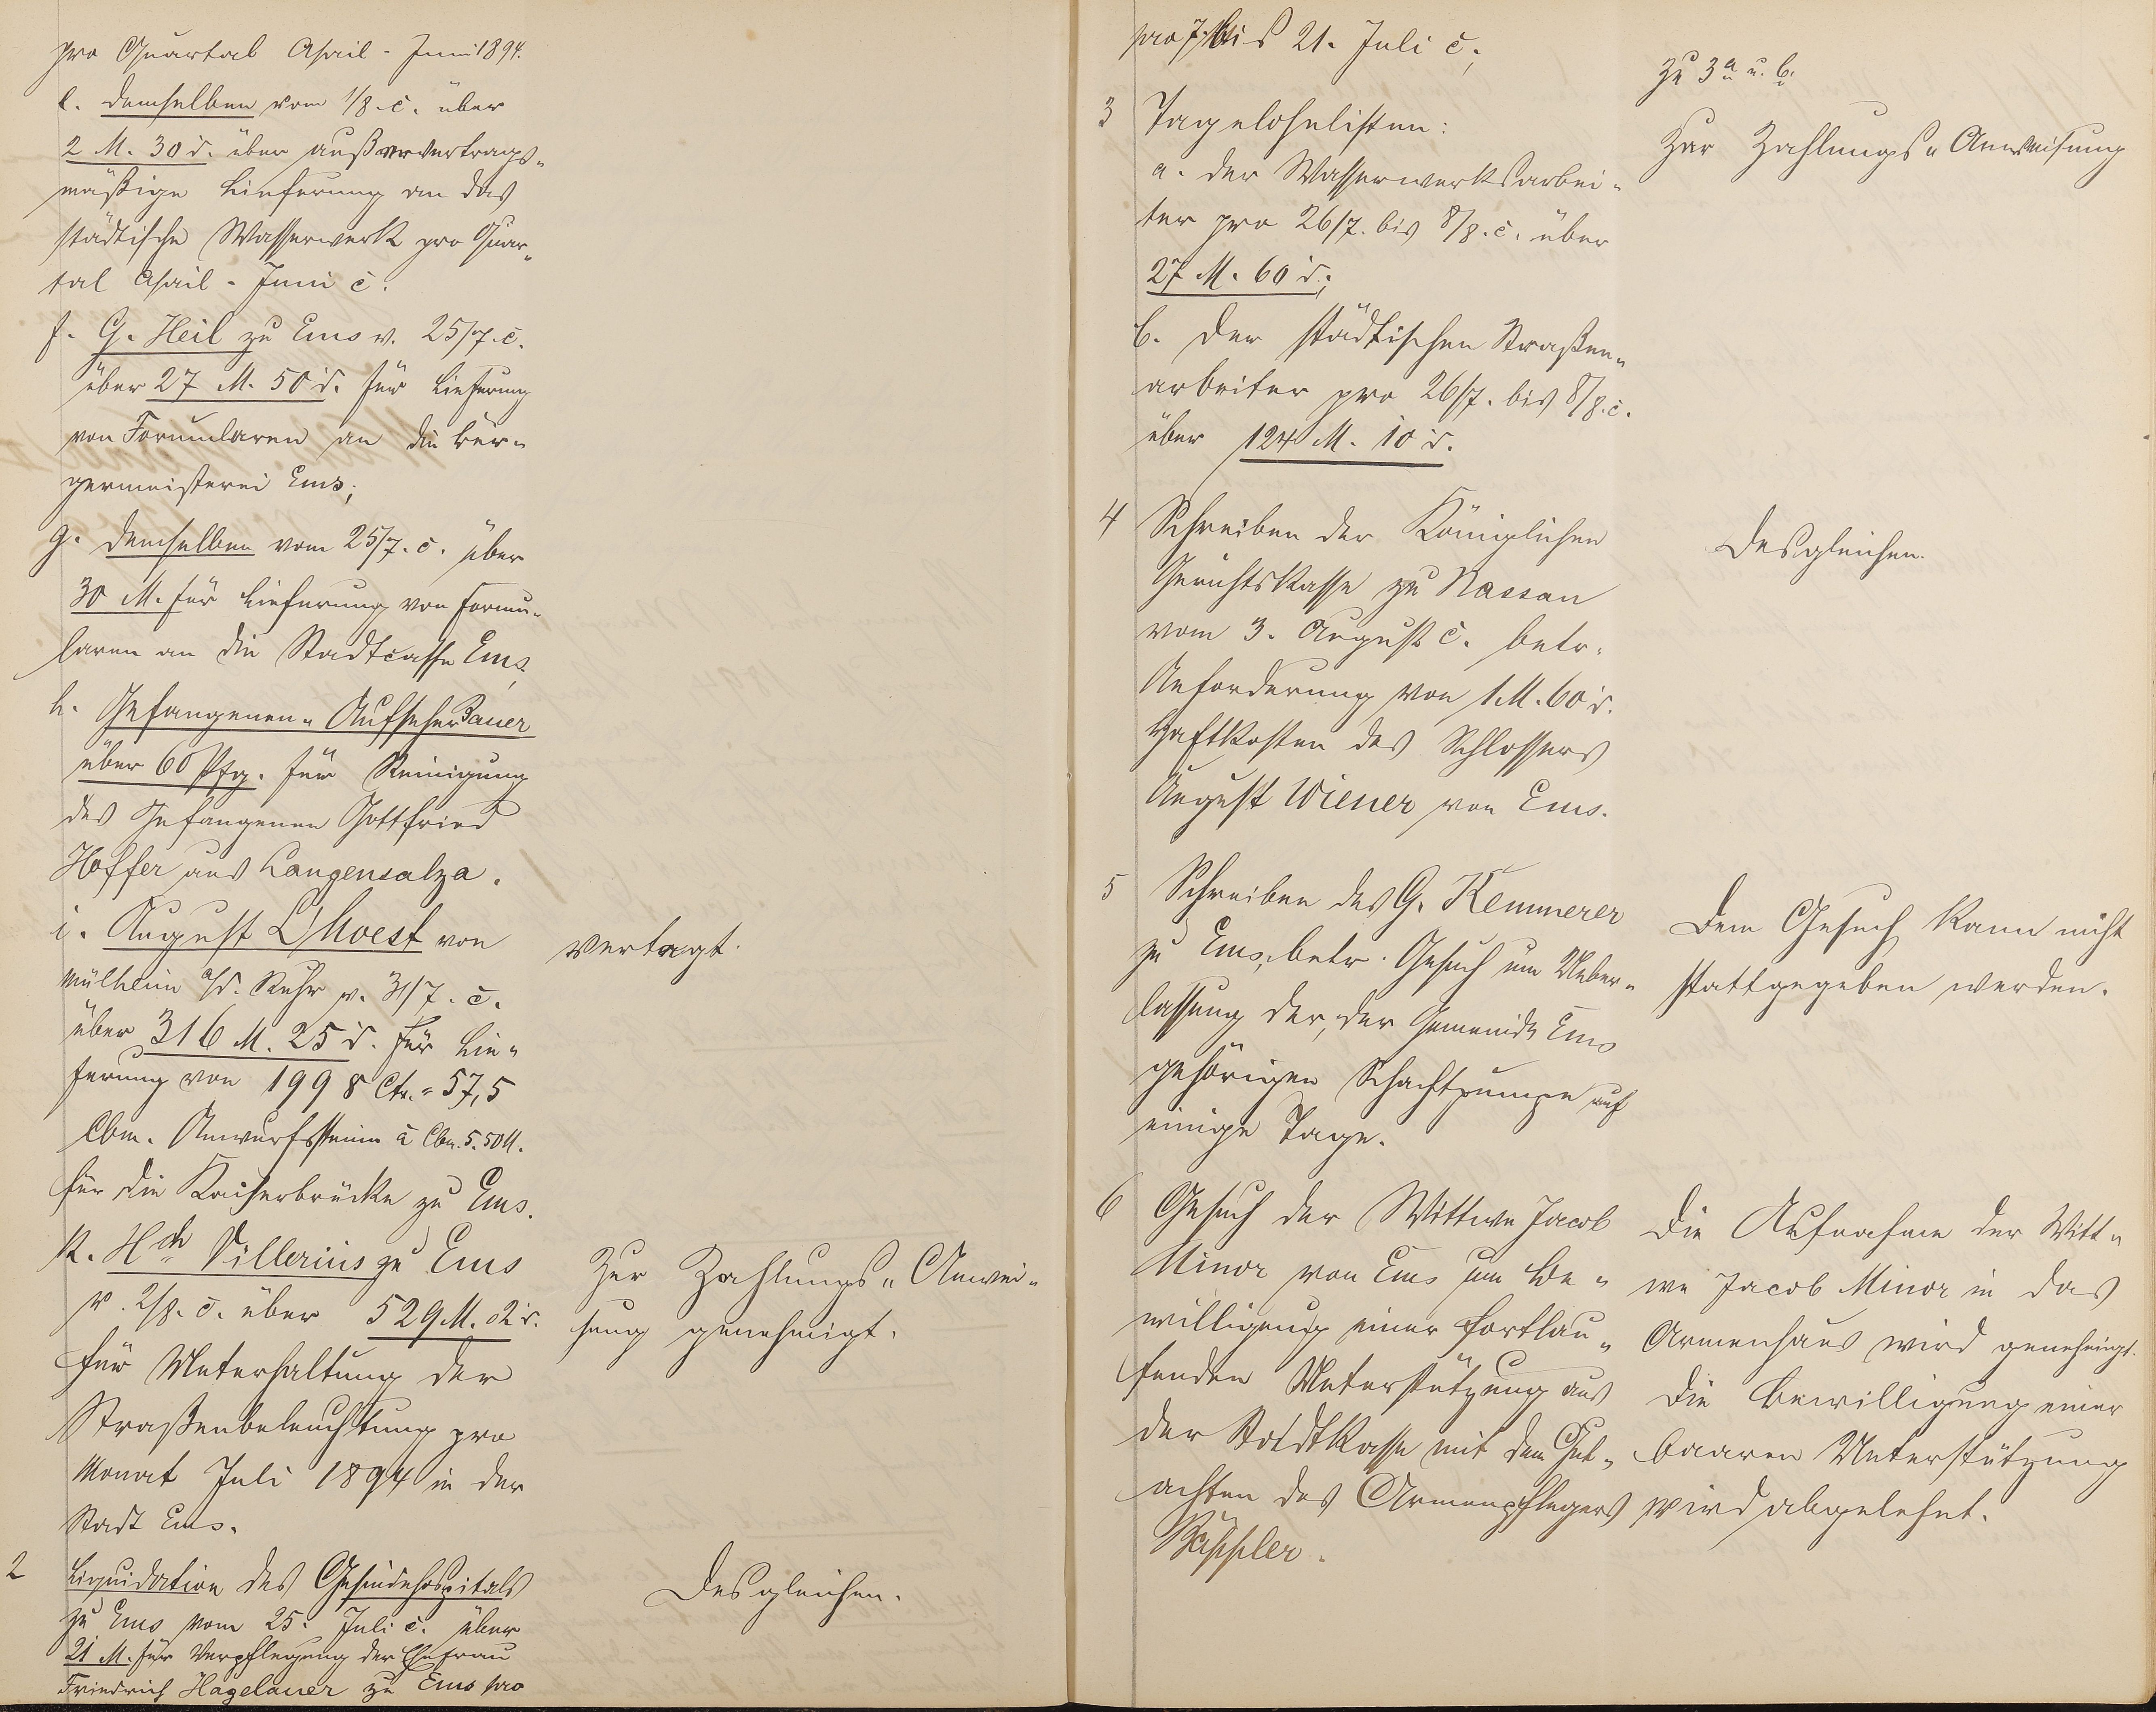 pro Quartal April - Juni 1894.
e. demselben vom 1/8. c. über
2 M. 30 d. über außervertrags-
mäßige Lieferung an das
städtische Wasserwerk pro Quar-
tal April - Juni c.
f. G. Heil zu Ems v. 25/7. c.
über 27 M. 50 d. für Lieferung
von Formularen an die Bür-
germeisterei Ems;
g. demselben vom 25/7. c. über
30 M. für Lieferung von Formu-
laren an die Stadtcasse Ems;
h. Gefangenen-Aufseher Bauer
über 60 Pfg. für Reinigung
des Gefangenen Gottfried
Hoffer aus Langensalza.
i. August L'hoest von
Mülheim a/d. Ruhr v. 31/7. c.
über 316 M. 25 d. für Lie-
ferung von 1998 Ctr. = 57,5
Cbm. Anwurfsteine à Cbm. 5.50 M.
für die Kaiserbrücke zu Ems.
vertagt.
k. Hch Villerius zu Ems
v. 2/8. c. über 529 M. 02 d.
für Unterhaltung der
Straßenbeleuchtung pro
Monat Juli 1894 in der
Stadt Ems.
Zur Zahlungs-Anwei-
sung genehmigt.
2 Liquidation des Gesindehospitals
zu Ems vom 25. Juli c. über
21 M. für Verpflegung der Ehefrau
Friedrich Hagelauer zu Ems pro
Desgleichen.
pro 7. bis 21. Juli c.;
3 Tagelohnlisten:
a. der Wasserwerksarbei-
ter pro 26/7. bis 8/8. c. über
27 M. 60 d.;
b. der städtischen Straßen-
arbeiter pro 26/7. bis 8/8. c.
über 124 M. 10 d.
zu 3 a u. b.
Zur Zahlungs-Anweisung
4 Schreiben der Königlichen
Gerichtskasse zu Nassau
vom 3. August c. betr.
Anforderung von 1 M. 60 d.
Haftkosten des Schlossers
August Wiener von Ems.
Desgleichen.
5 Schreiben des G. Kemmerer
zu Ems, betr. Gesuch um Ueber-
lassung der, der Gemeinde Ems
gehörigen Schachtpumpe auf
einige Tage.
Dem Gesuch kann nicht
stattgegeben werden.
6 Gesuch der Wittwe Jacob
Minor von Ems um Be-
willigung einer fortlau-
fenden Unterstützung aus
der Stadtkasse mit dem Gut-
achten des Armenpflegers
Bäppler.
Die Aufnahme der Witt-
we Jacob Minor in das
Armenhaus wird genehmigt.
Die Bewilligung einer
baaren Unterstützung
wird abgelehnt.